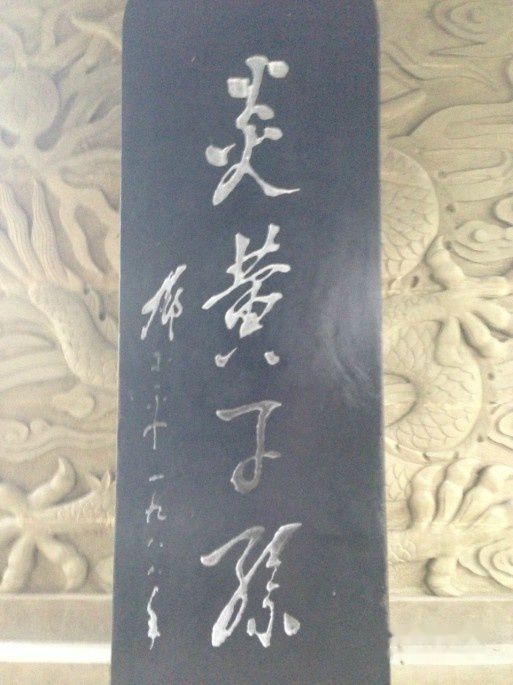 炎黄子孫
邓小平 一九八八年